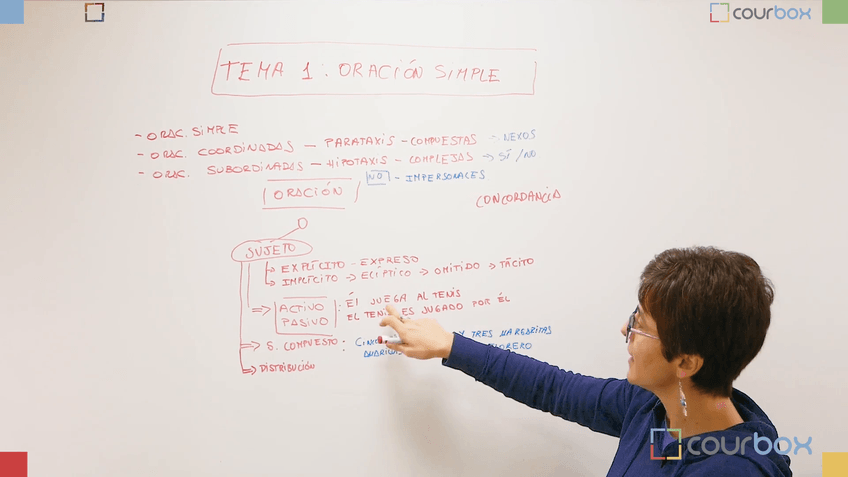 courbox
TEMA 1: ORACIÓN SIMPLE
- ORAC. SIMPLE
- ORAC. COORDINADAS — PARATAXIS - COMPUESTAS - NEXOS
- ORAC. SUBORDINADAS — HIPOTAXIS - COMPLEJAS → SÍ / NO
NO - IMPERSONALES
ORACIÓN
CONCORDANCIA
SUJETO
→ EXPLÍCITO - EXPRESO
→ IMPLÍCITO → ELÍPTICO → OMITIDO → TÁCITO
⇒ ACTIVO : ÉL JUEGA AL TENIS
PASIVO EL TENIS ES JUGADO POR ÉL
⇒ S. COMPUESTO : Y TRES MARGARITAS
⇒ DISTRIBUCIÓN
courbox